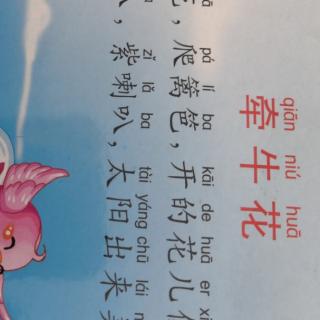 qiān niú huā
牵牛花
pá lí ba kāi de huā er
，爬篱笆，开的花儿
zǐ lǎ ba tài yáng chū lái
，紫喇叭，太阳出来